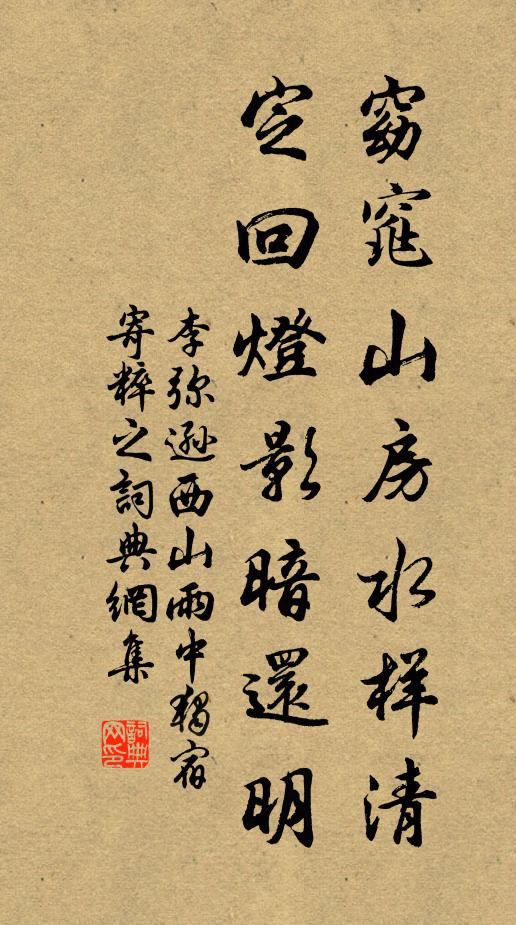 窈窕山房水样清
定回燈影暗還明
李弥遜西山雨中獨宿
寄粹之詞典網集
詞典网印